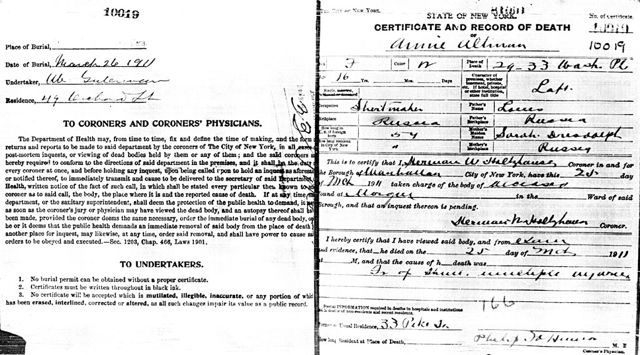 10019
Place of Burial,
Date of Burial, March 26 1911
Undertaker,
Residence,
TO CORONERS AND CORONERS' PHYSICIANS.
The Department of Health may, from time to time, fix and define the time of making, and the form of
returns and reports to be made to said department by the coroners of The City of New York, in all cases of
post-mortem inquests, or viewing of dead bodies held by them or any of them; and the said coroners are
hereby required to conform to the directions of said department in the premises, and it shall be the duty of
every coroner at once, and before holding any inquest, upon being called upon to hold an inquest as aforesaid
or notified thereof, to immediately transmit and cause to be delivered to the secretary of said Department of
Health, written notice of the fact of such call, in which shall be stated every particular then known to such
coroner as to said call, the body, the place where it is and the reported cause of death. If at any time
department, or the sanitary superintendent, shall deem the protection of the public health to demand, it
as soon as the coroner's jury or physician may have viewed the dead body, and an autopsy thereof shall
been made, provided the coroner deems the same necessary, order the immediate burial of any dead body, or
he or it deems that the public health demands an immediate removal of said body from the place of death
another place for inquest, may likewise, at any time, order said removal, and shall have power to cause
orders to be obeyed and executed.—Sec. 1203, Chap. 466, Laws 1901.
TO UNDERTAKERS.
1. No burial permit can be obtained without a proper certificate.
2. Certificates must be written throughout in black ink.
3. No certificate will be accepted which is mutilated, illegible, inaccurate, or any portion of which
has been erased, interlined, corrected or altered, as all such changes impair its value as a public record.
City of New York.
STATE OF NEW YORK.
No. of Certificate.
CERTIFICATE AND RECORD OF DEATH
10019
OF
Annie Altman
10019
F Color W Place of Death 29-33 Wash. Pl
16 Yrs. Mos. Days
Character of premises, whether tenement, private, etc. If hotel, hospital or other institution, state full title Loft
Occupation Shirtmaker Father's Name Louis
Birthplace Russia Father's Birthplace Russia
Mother's Name Sarah
Mother's Birthplace Russia
This is to certify I, Herman W. Holtzhauser Coroner in and for
the Borough of Manhattan City of New York, have this 25 day
of Mch 1911 taken charge of the body of deceased
found at Morgue in the Ward of said
Borough, and that an inquest thereon is pending.
Herman W. Holtzhauser
Coroner.
I hereby certify that I have viewed said body, and from exam
and evidence, that she died on the 25 day of Mch 1911
M., and that the cause of her death was
Fr of Skull, multiple injuries
166
SPECIAL INFORMATION required in deaths in hospitals and institutions
and in deaths of non-residents and recent residents.
Usual Residence, 33 Pike St
How long Resident at Place of Death,
M. D.
Coroner's Physician.